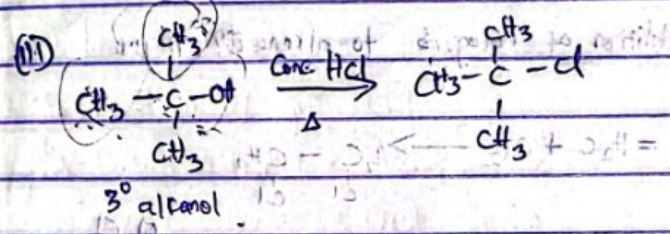 (III) CH3 CH3
CH3 - C - OH Conc HCl Δ CH3 - C - Cl
CH3 CH3
3° alkanol